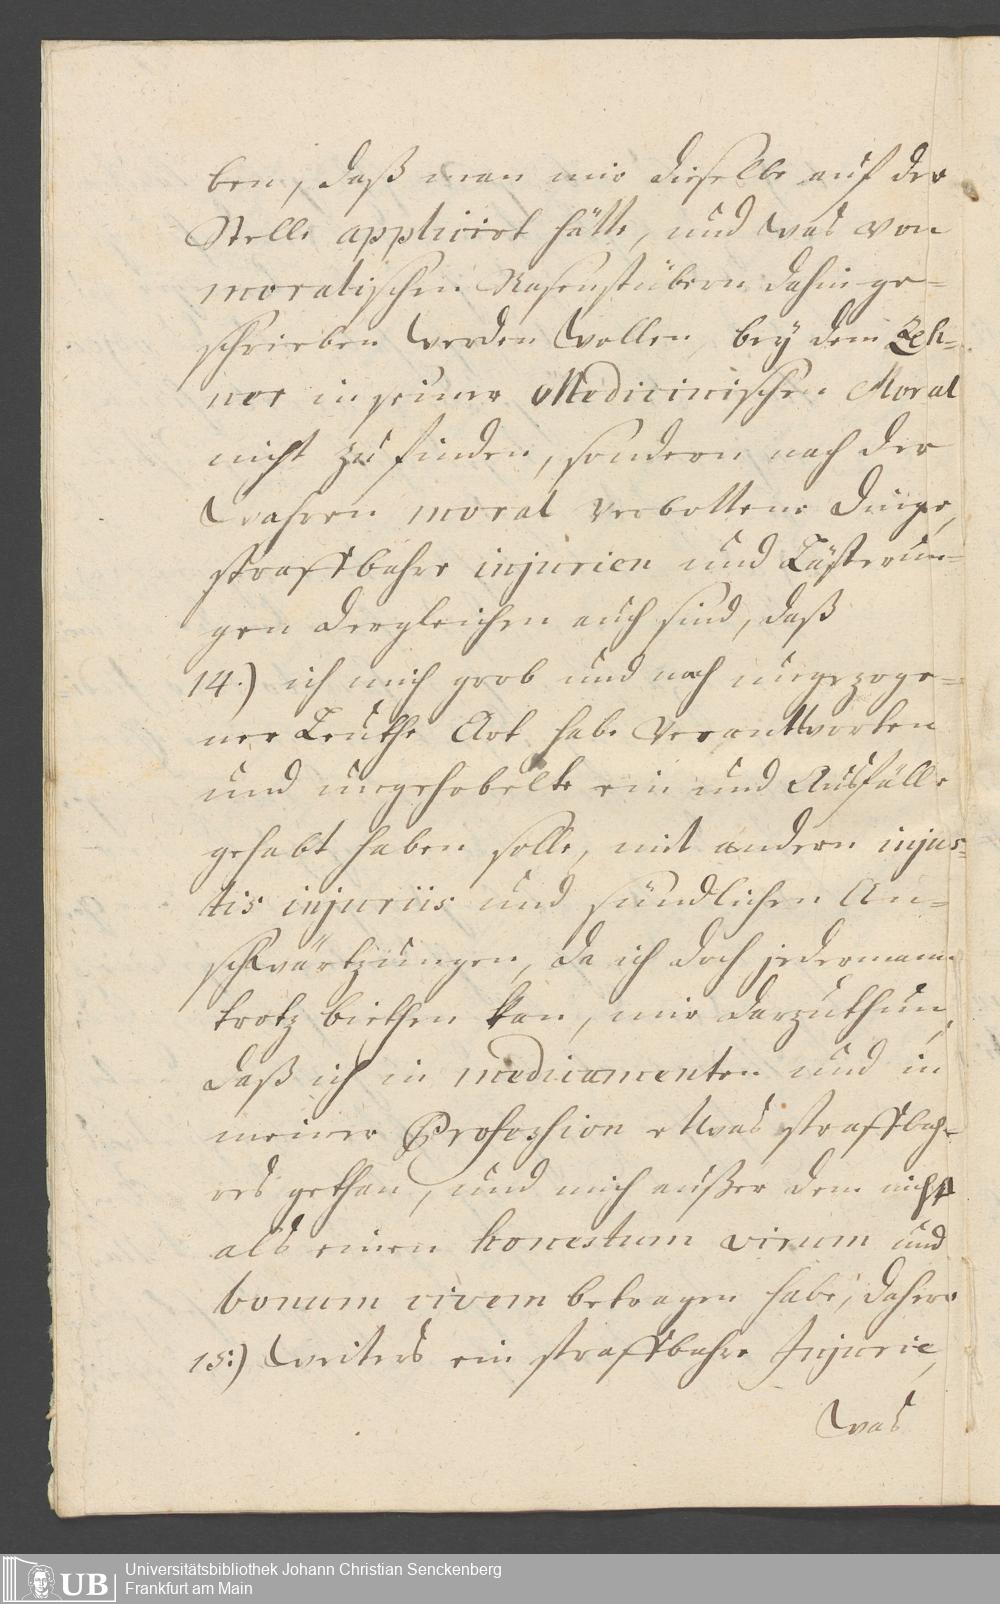 ben, daß man mir dieselbe auf der
Stelle applicirt hätte, und was von
moralischen Nasenstübern dahin ge-
schrieben werden wollen, bey dem Zeh-
ner in seiner Medicinischen Moral
nicht zu finden, sondern nach der
wahren moral verbottene Dinge,
straffbahre injurien und Lästerun-
gen dergleichen auch sind, daß
14.) ich mich grob und nach ungezoge-
ner Leuthe Art habe verantworten
und ungehobelte ein und Ausfälle
gehabt haben solle, mit andern injus-
tis injuriis und sündlichen An-
schwärtzungen, da ich doch jedermann
trotz biethen kan, mir darzuthun,
daß ich in medicamenten und in
meiner Profession etwas straffbah-
res gethan, und mich außer dem nicht
als einen honestum virum und
bonum civem betragen habe, dahero
15:) weiters ein straffbahre Injurie,
was
Universitätsbibliothek Johann Christian Senckenberg
Frankfurt am Main
UB